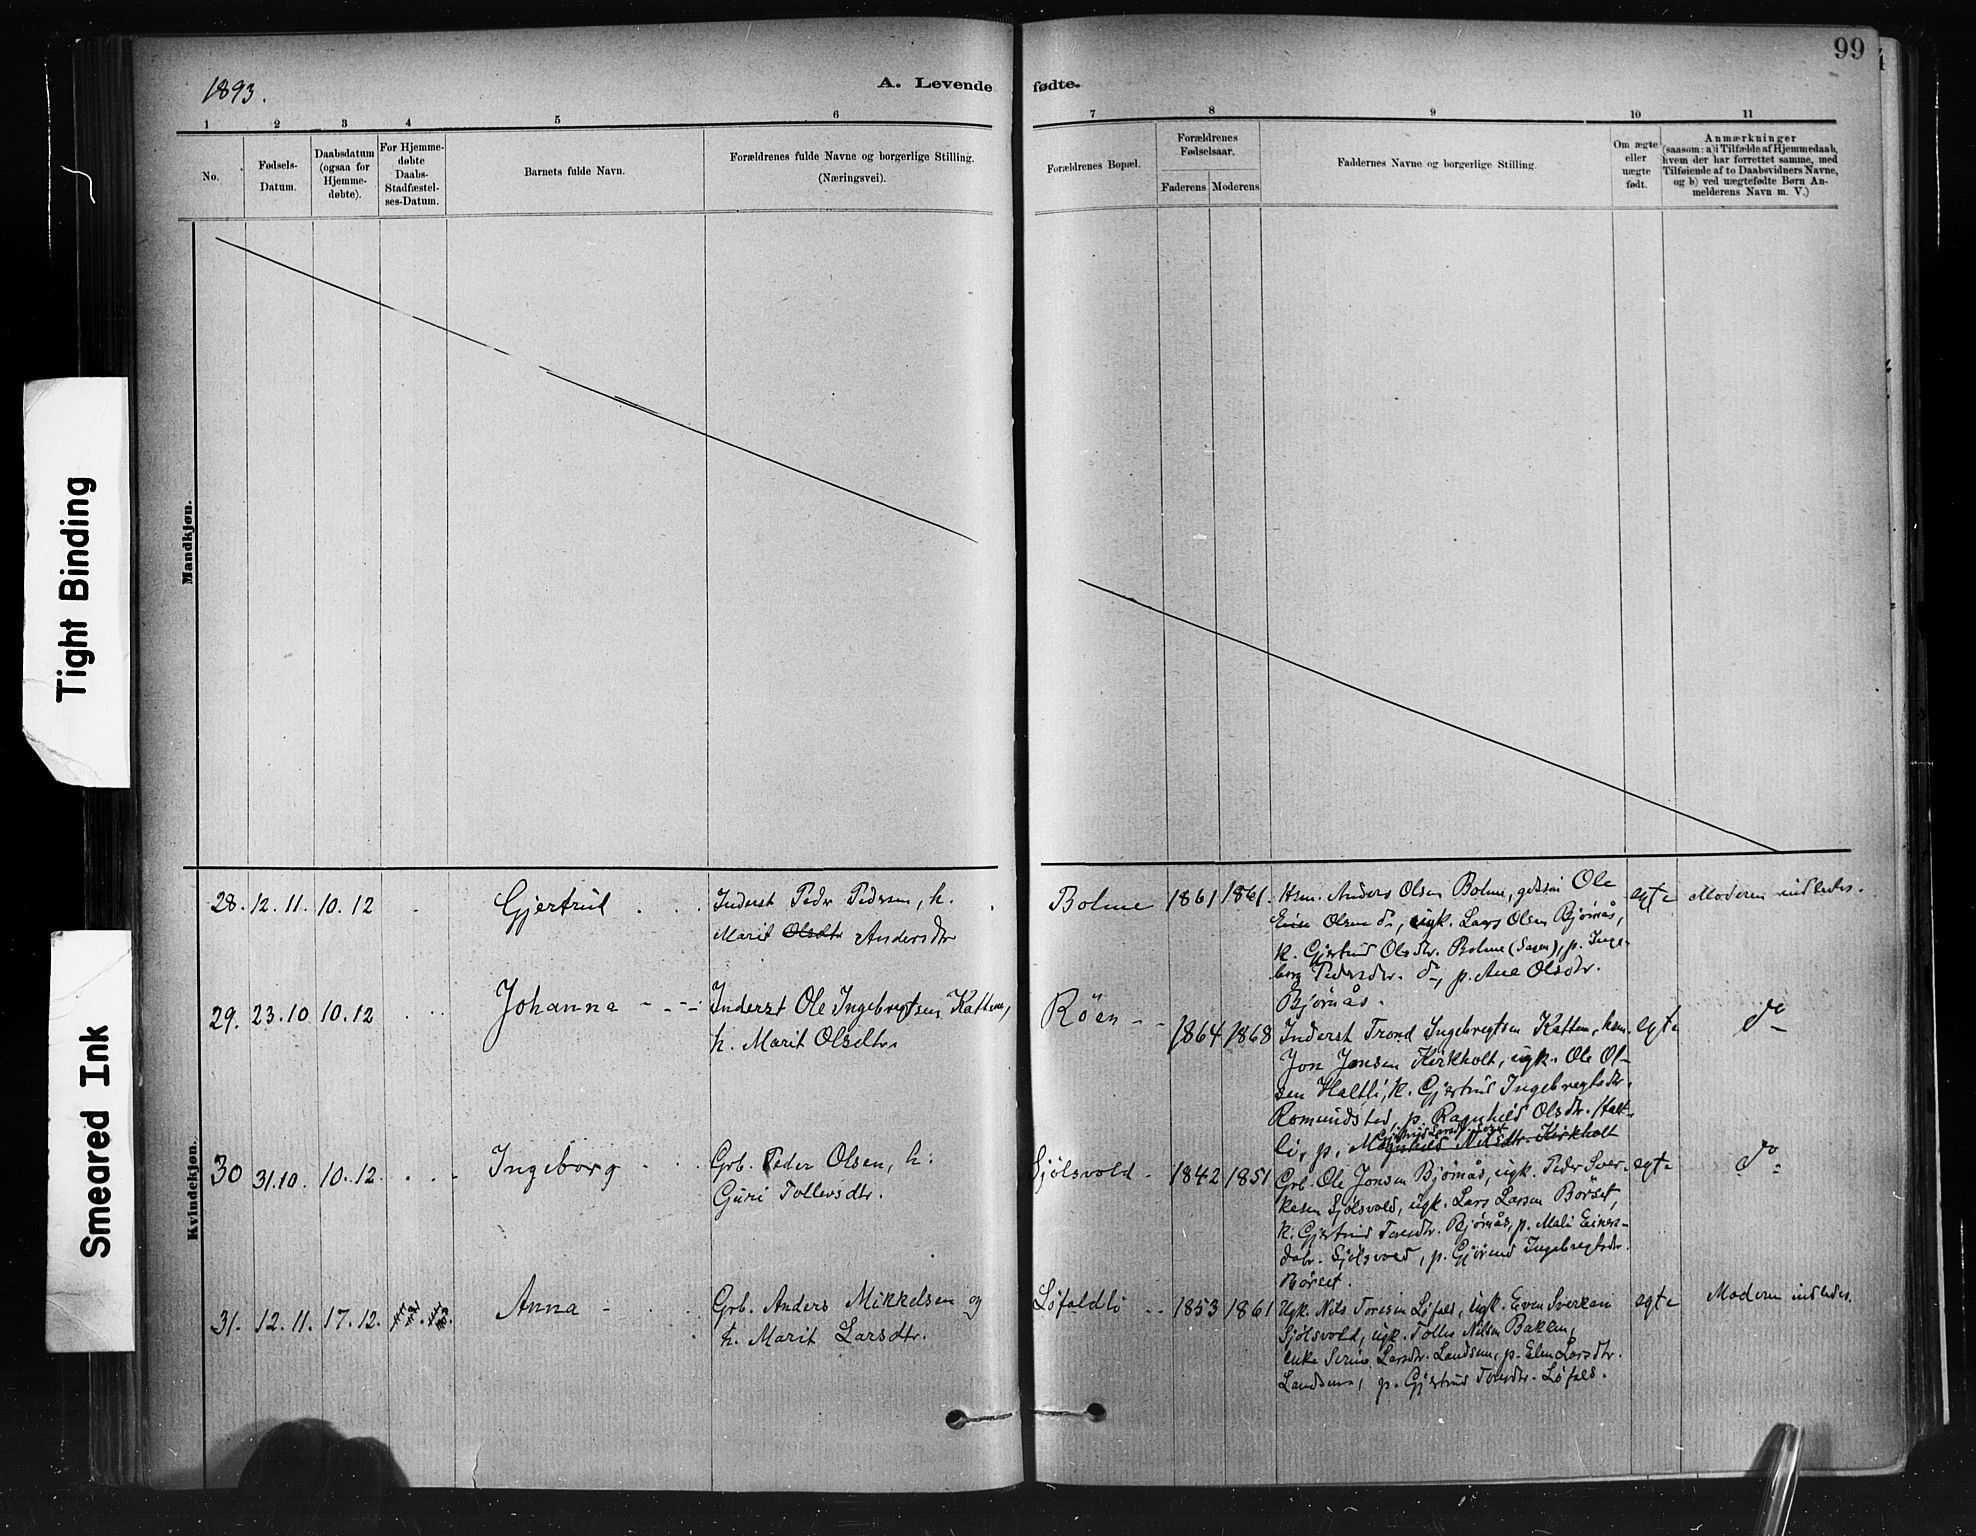 99
1893.
A. Levende fødte.
1 2 3 4 5 6 7 8 9 10 11
No.
Fødsels-
Datum.
Daabsdatum
(ogsaa for
Hjemme-
døbte).
For Hjemme-
døbte
Daabs-
Stadfæstel-
ses-Datum.
Barnets fulde Navn.
Forældrenes fulde Navne og borgerlige Stilling.
(Næringsvei).
Forældrenes Bopæl.
Forældrenes
Fødselsaar.
Faderens Moderens
Faddernes Navne og borgerlige Stilling.
Om ægte
eller
uægte
født.
Anmærkninger
(saasom: a) i Tilfælde af Hjemmedaab,
hvem der har forrettet samme, med
Tilføiende af to Daabsvidners Navne,
og b) ved uægtefødte Børn An-
melderens Navn m. V.)
Mandkjøn.
Tight Binding
Smeared Ink
Kvindekjøn.
28. 12. 11. 10. 12
Gjertrud
Inderst Peder Pedersen, h.
Marit Olsdtr Andersdtr
Bolme 1861 1861.
Hsm. Anders Olsen Bolme, Ole
Olsen do, ugk. Lars Olsen Bjørnås,
k. Gjertrud Olsdtr. Bolme (Sagen), p. Inge-
borg Pedersdtr. do, p. Ane Olsdtr.
Bjørnås.
egte
Moderen indledes.
29. 23. 10 10. 12
Johanna
Inderst Ole Ingebregtsen Kattem,
h. Marit Olsdtr.
Röen 1864 1868
Inderst Trond Ingebregtsen Kattem,
Jon Jonsen Kirkholt, ugk. Ole Ol-
sen Haltli, k. Gjertrud Ingebregtsdtr.
Romundstad, p. Ragnhild Olsdtr. Halt-
li, p. Magnhild Nilsdtr. Kirkholt
egte
do
30 31. 10. 10. 12.
Ingeborg
Grb. Peder Olsen, h.
Guri Tollevsdtr.
Sjölsvold 1842 1851
Grb. Ole Jonsen Bjørnås, ugk. Peder Sver-
kesen Sjölsvold, ugk. Lars Larsen Börset,
k. Gjertrud Toresdtr. Bjørnås, p. Mali Einars-
datr. Sjölsvold, p. Ingebregtsdtr.
Börset.
egte
do
31. 12. 11. 17. 12.
Anna
Grb. Anders Mikkelsen og
h. Marit Larsdtr.
Löfaldli 1853 1861
Ugk. Nils Toresen Löfald, ugk. Even Sverkesen
Sjölsvold, ugk. Nilsen Bakken,
enke Larsdtr. Landsem, p. Elen Larsdtr.
Landsem, p. Gjertrud Toresdtr. Löfald.
egte
Moderen indledes.